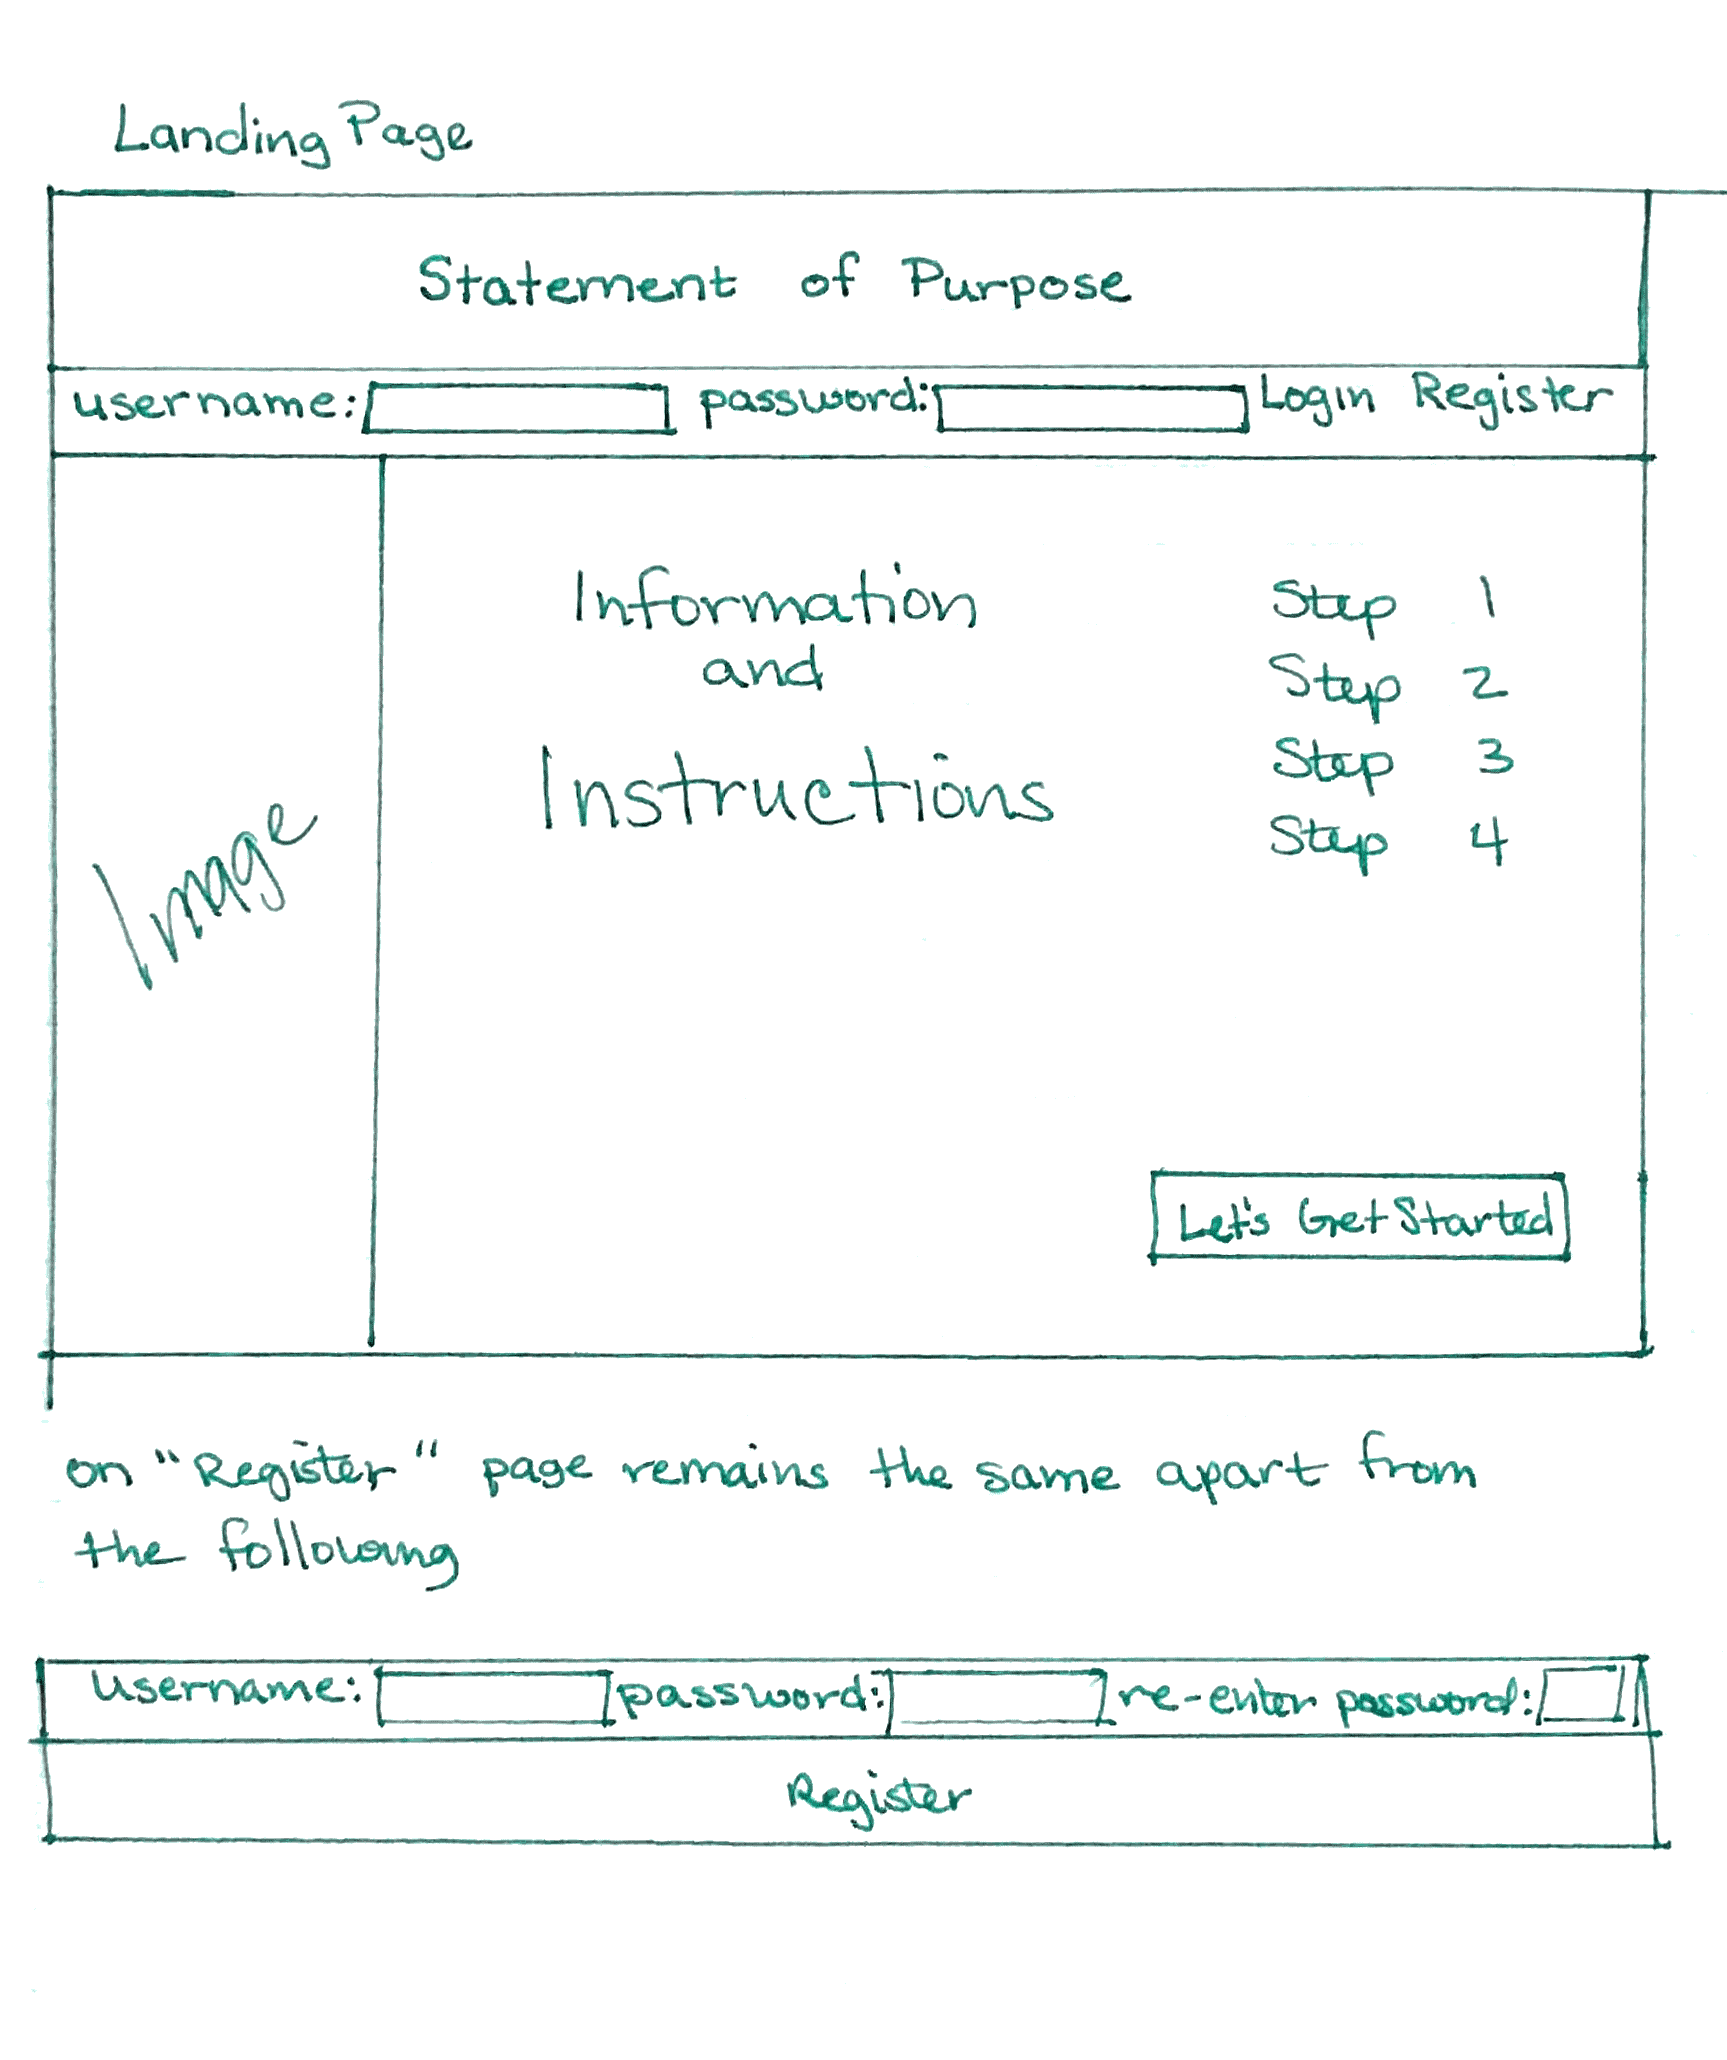 Landing Page
Statement of Purpose
username: password: Login Register
Image
Information
and
Instructions
Step 1
Step 2
Step 3
Step 4
Let's Get Started
on "Register" page remains the same apart from
the following
Username: password: re-enter password:
Register